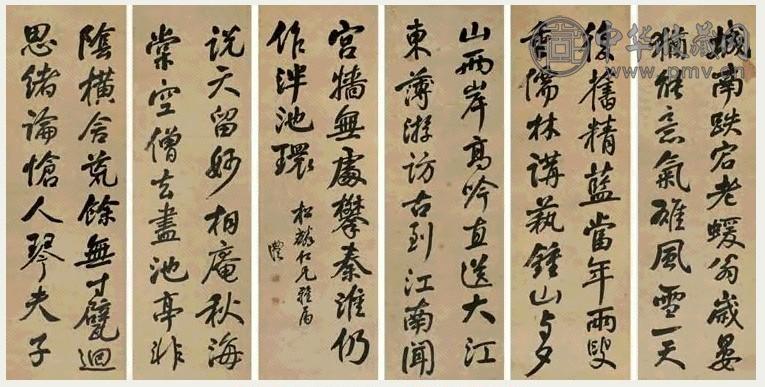 城南跌宕老蝯翁歲晏
猶能意氣雄風雪一天
復舊精藍當年兩叟
重儒林講藝鍾山與夕
山兩岸高吟直送大江
東薄游訪古到江南聞
宮牆無處攀秦淮仍
作泮池環
松 仁兄雅屬
說天留妙相庵秋海
棠空僧去盡池亭非
陰橫舍荒餘無寸甓迴
思緒論愴人琴夫子
中华收藏网
www.pmv.cn